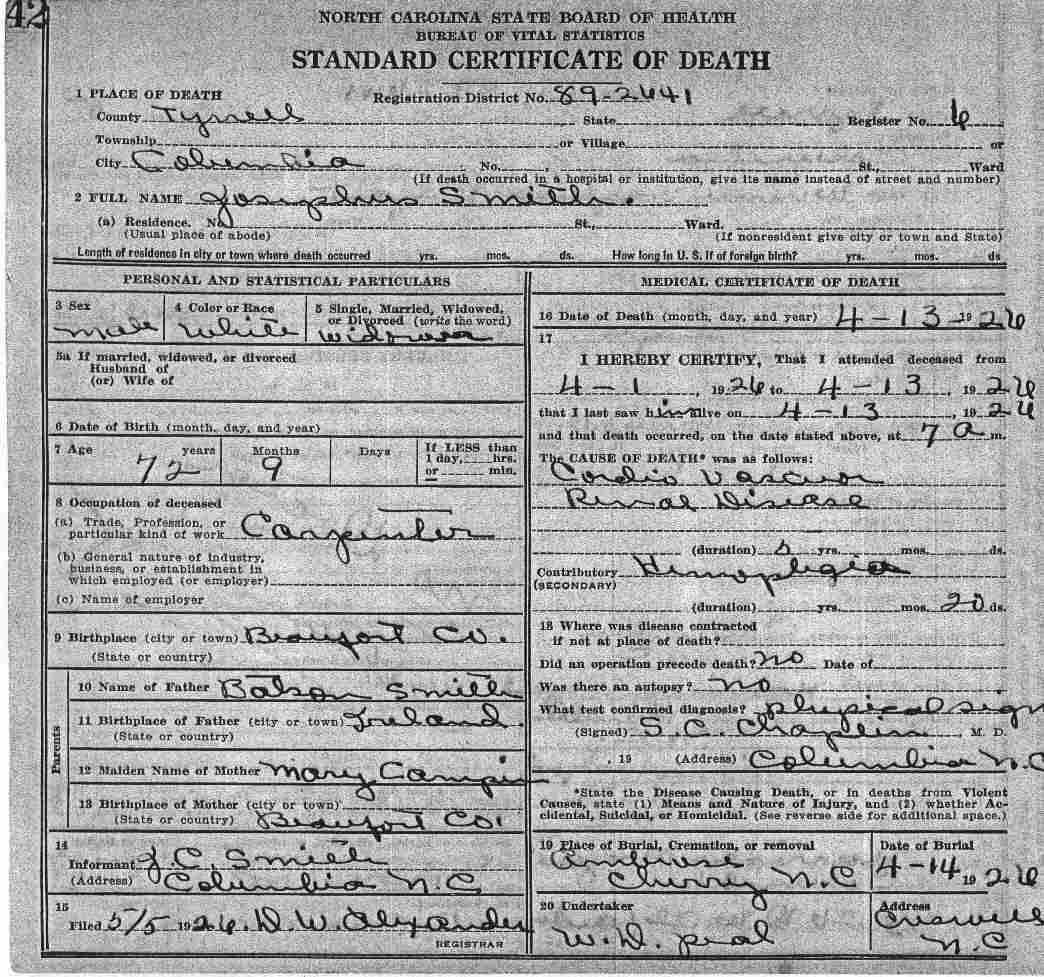 42
NORTH CAROLINA STATE BOARD OF HEALTH
BUREAU OF VITAL STATISTICS
STANDARD CERTIFICATE OF DEATH
1 PLACE OF DEATH Registration District No. 89-2641
County Tyrrell State Register No. 6
Township or Village or
City Columbia No. St., Ward
(If death occurred in a hospital or institution, give its name instead of street and number)
2 FULL NAME Josephus Smith.
(a) Residence. No St., Ward.
(Usual place of abode) (If nonresident give city or town and State)
Length of residence in city or town where death occurred yrs. mos. ds. How long in U. S. if of foreign birth? yrs. mos. ds
PERSONAL AND STATISTICAL PARTICULARS
3 Sex 4 Color or Race 5 Single, Married, Widowed,
or Divorced (write the word)
Male White Widower
5a If married, widowed, or divorced
Husband of
(or) Wife of
6 Date of Birth (month, day, and year)
7 Age years Months Days If LESS than
1 day, hrs.
72 9 or min.
8 Occupation of deceased
(a) Trade, Profession, or
particular kind of work Carpenter
(b) General nature of industry,
business, or establishment in
which employed (or employer)
(c) Name of employer
9 Birthplace (city or town) Beaufort Co.
(State or country)
Parents
10 Name of Father Batson Smith
11 Birthplace of Father (city or town) Ireland.
(State or country)
12 Maiden Name of Mother Mary
13 Birthplace of Mother (city or town)
(State or country) Beaufort Co.
14
Informant J. C. Smith
(Address) Columbia N.C
15
Filed 5/5 1926. D. W. Alexander
REGISTRAR
MEDICAL CERTIFICATE OF DEATH
16 Date of Death (month, day, and year) 4-13-1926
17
I HEREBY CERTIFY, That I attended deceased from
4-1, 1926 to 4-13, 1926
that I last saw him alive on 4-13, 1926
and that death occurred, on the date stated above, at 7 a m.
The CAUSE OF DEATH* was as follows:
Cardio Vascular
Renal Disease
(duration) yrs. mos. ds.
Contributory Hemoplegia
(SECONDARY)
(duration) yrs. mos. 20 ds.
18 Where was disease contracted
if not at place of death?
Did an operation precede death? no Date of
Was there an autopsy? no
What test confirmed diagnosis? physical sign
(Signed) S. C. Chaplin, M. D.
, 19 (Address) Columbia N.C
*State the Disease Causing Death, or in deaths from Violent
Causes, state (1) Means and Nature of Injury, and (2) whether Ac-
cidental, Suicidal, or Homicidal. (See reverse side for additional space.)
19 Place of Burial, Cremation, or removal Date of Burial
Ambrose
Cherry N.C 4-14 1926
20 Undertaker Address
W. D. peal Creswell
N.C